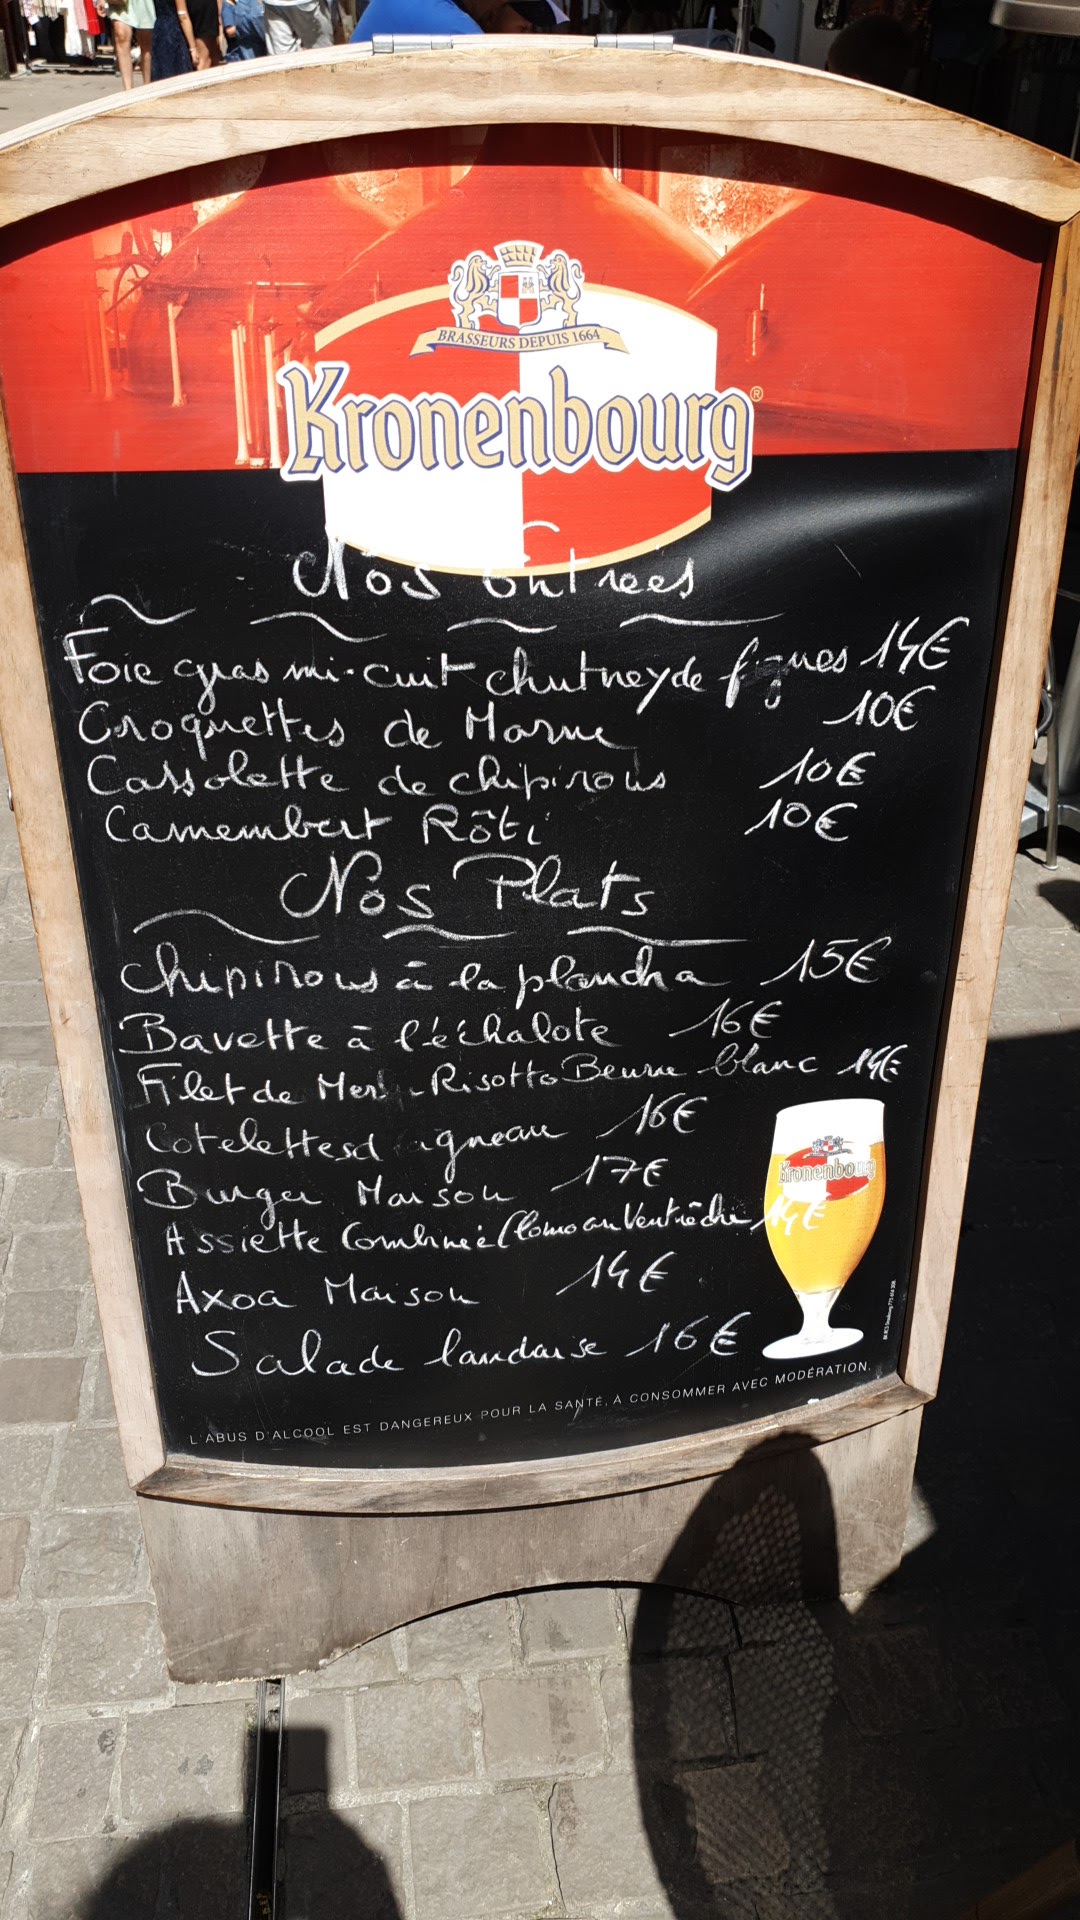 BRASSEURS DEPUIS 1664
Kronenbourg®
Nos Entrées
Foie gras mi-cuit chutney de figues 14€
Croquettes de Morue 10€
Cassolette de chipirous 10€
Camembert Rôti 10€
Nos Plats
Chipirous à la plancha 15€
Bavette à l'échalote 16€
Filet de Merlu Risotto Beurre blanc 14€
Cotelettes d agneau 16€
Burger Maison 17€
Kronenbourg
Assiette Combinée (lomo ou Ventrèche 14€
Axoa Maison 14€
Salade landaise 16€
L'ABUS D'ALCOOL EST DANGEREUX POUR LA SANTÉ, À CONSOMMER AVEC MODÉRATION.